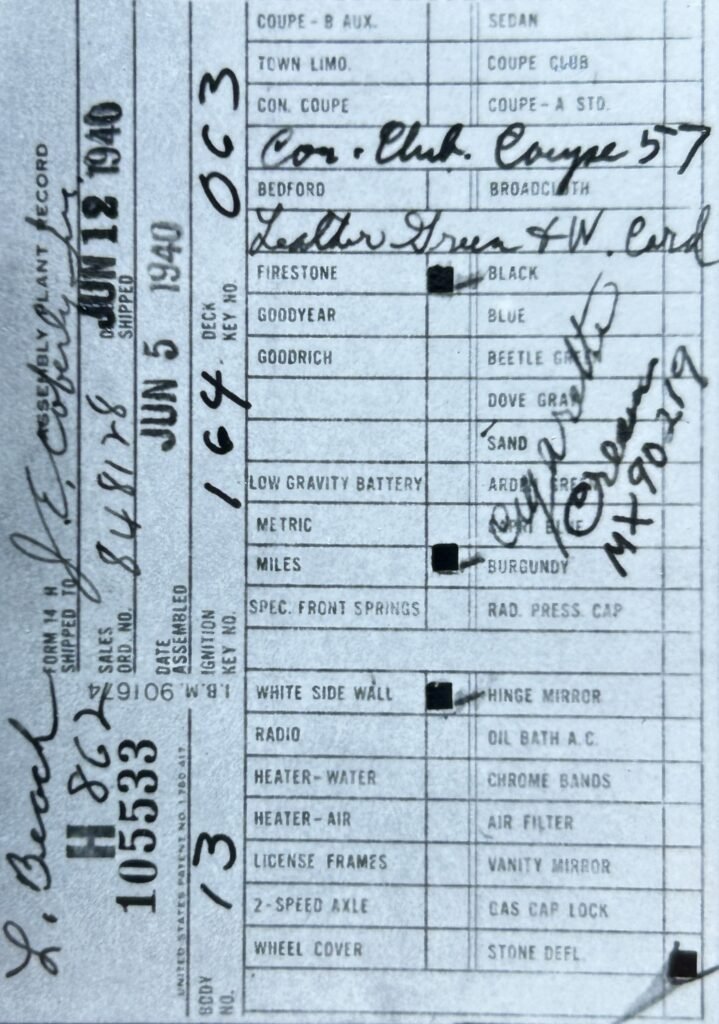 FORM 14 H
ASSEMBLY PLANT RECORD
SHIPPED TO J. E. Coberly Inc.
SALES ORD NO. 848128
SHIPPED JUN 12 1940
DATE ASSEMBLED JUN 5 1940
IGNITION KEY NO. 164 DECK KEY NO. 063
L. Beach
H 862
105533
I.B.M. 901674
UNITED STATES PATENT NO. 1780417
BODY NO. 13
COUPE-B AUX. SEDAN
TOWN LIMO. COUPE CLUB
CON. COUPE COUPE-A STD.
Con. Club. Coupe 57
BEDFORD BROADCLOTH
Leather Green & W. Cord
FIRESTONE BLACK
GOODYEAR BLUE
GOODRICH BEETLE GREEN
DOVE GRAY
SAND
LOW GRAVITY BATTERY
METRIC CAPRI BLUE
MILES BURGUNDY
Cigarette
Cream
MX 90219
SPEC. FRONT SPRINGS RAD. PRESS. CAP
WHITE SIDE WALL HINGE MIRROR
RADIO OIL BATH A.C.
HEATER-WATER CHROME BANDS
HEATER-AIR AIR FILTER
LICENSE FRAMES VANITY MIRROR
2-SPEED AXLE GAS CAP LOCK
WHEEL COVER STONE DEFL.